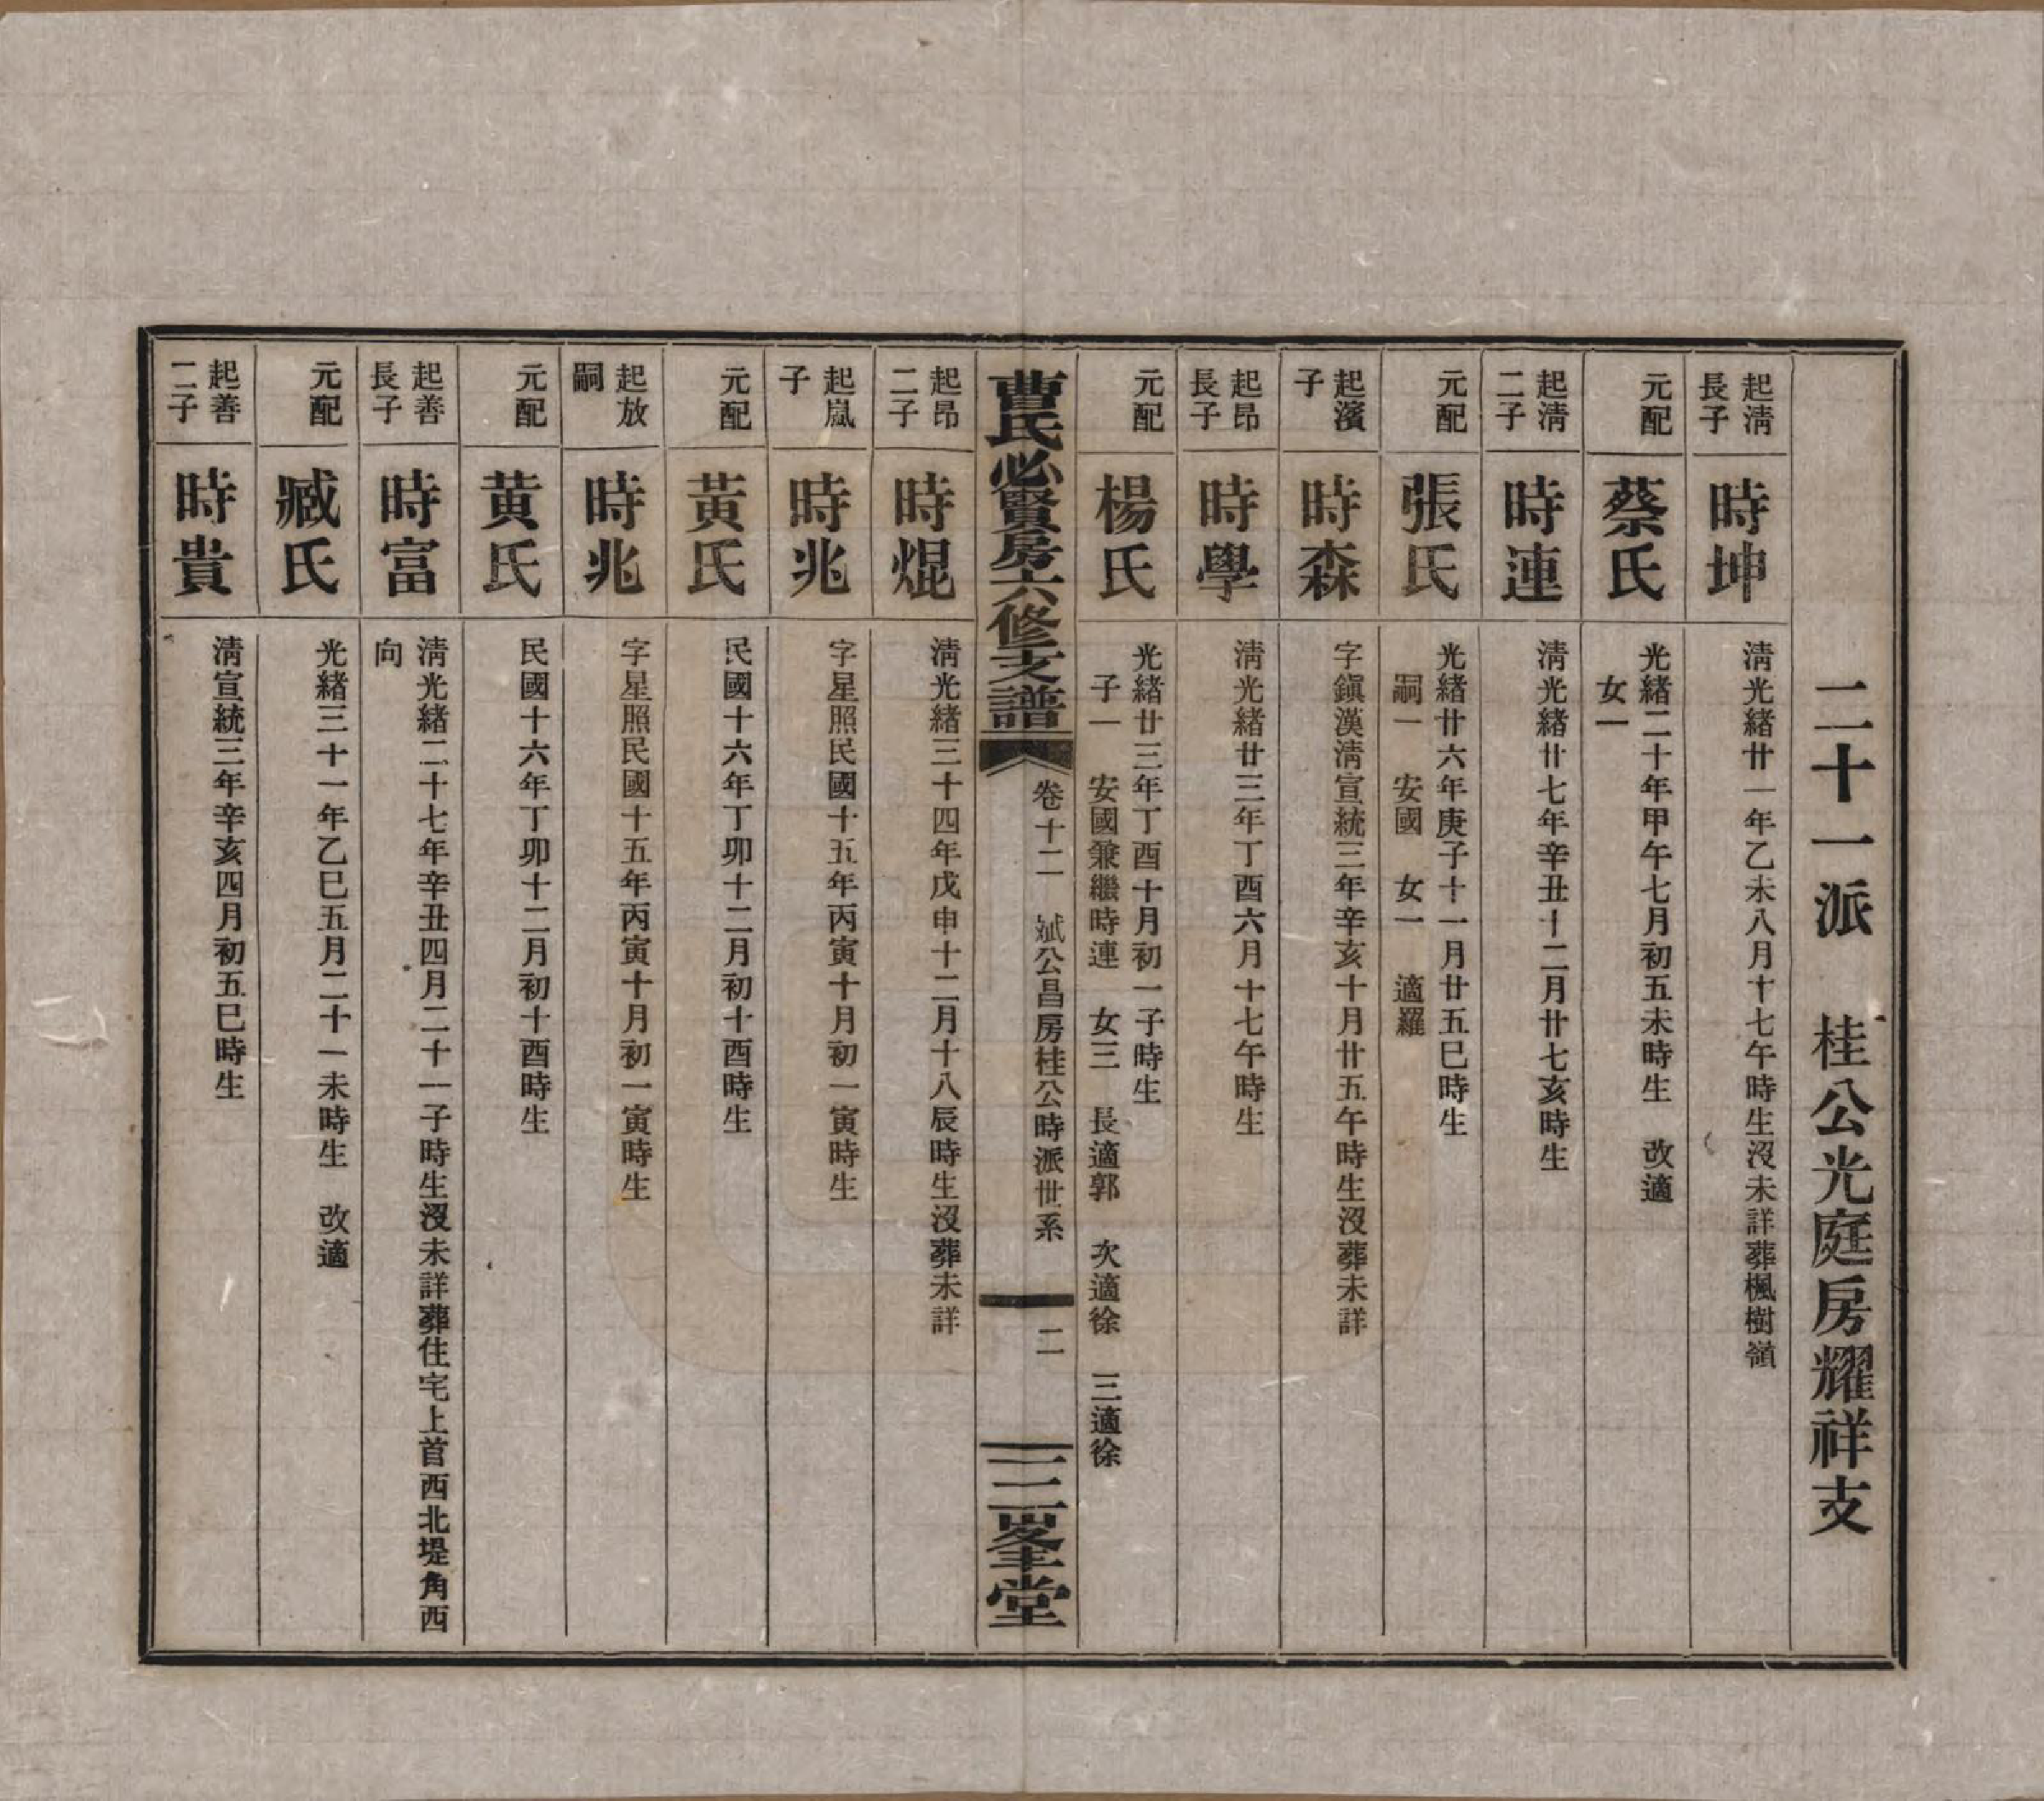 二十一派　桂公光庭房耀祥支
起淸
長子
時坤
淸光緒廿一年乙未八月十七午時生沒未詳葬楓樹嶺
元配
蔡氏
光緒二十年甲午七月初五未時生　改適
女一
起淸
二子
時連
淸光緒廿七年辛丑十二月廿七亥時生
元配
張氏
光緒廿六年庚子十一月廿五巳時生
嗣一　安國　女一　適羅
起濱
子
時森
字鎭漢淸宣統三年辛亥十月廿五午時生沒葬未詳
起昂
長子
時學
淸光緒廿三年丁酉六月十七午時生
元配
楊氏
光緒廿三年丁酉十月初一子時生
子一　安國兼繼時連　女三　長適郭　次適徐　三適徐
曹氏必賢房六修支譜
卷十二　斌公昌房桂公時派世系
二
二峯堂
起昂
二子
時焜
淸光緒三十四年戊申十二月十八辰時生沒葬未詳
起嵐
子
時兆
字星照民國十五年丙寅十月初一寅時生
元配
黃氏
民國十六年丁卯十二月初十酉時生
起放
嗣
時兆
字星照民國十五年丙寅十月初一寅時生
元配
黃氏
民國十六年丁卯十二月初十酉時生
起善
長子
時富
淸光緒二十七年辛丑四月二十一子時生沒未詳葬住宅上首西北堤角西
向
元配
臧氏
光緒三十一年乙巳五月二十一未時生　改適
起善
二子
時貴
淸宣統三年辛亥四月初五巳時生